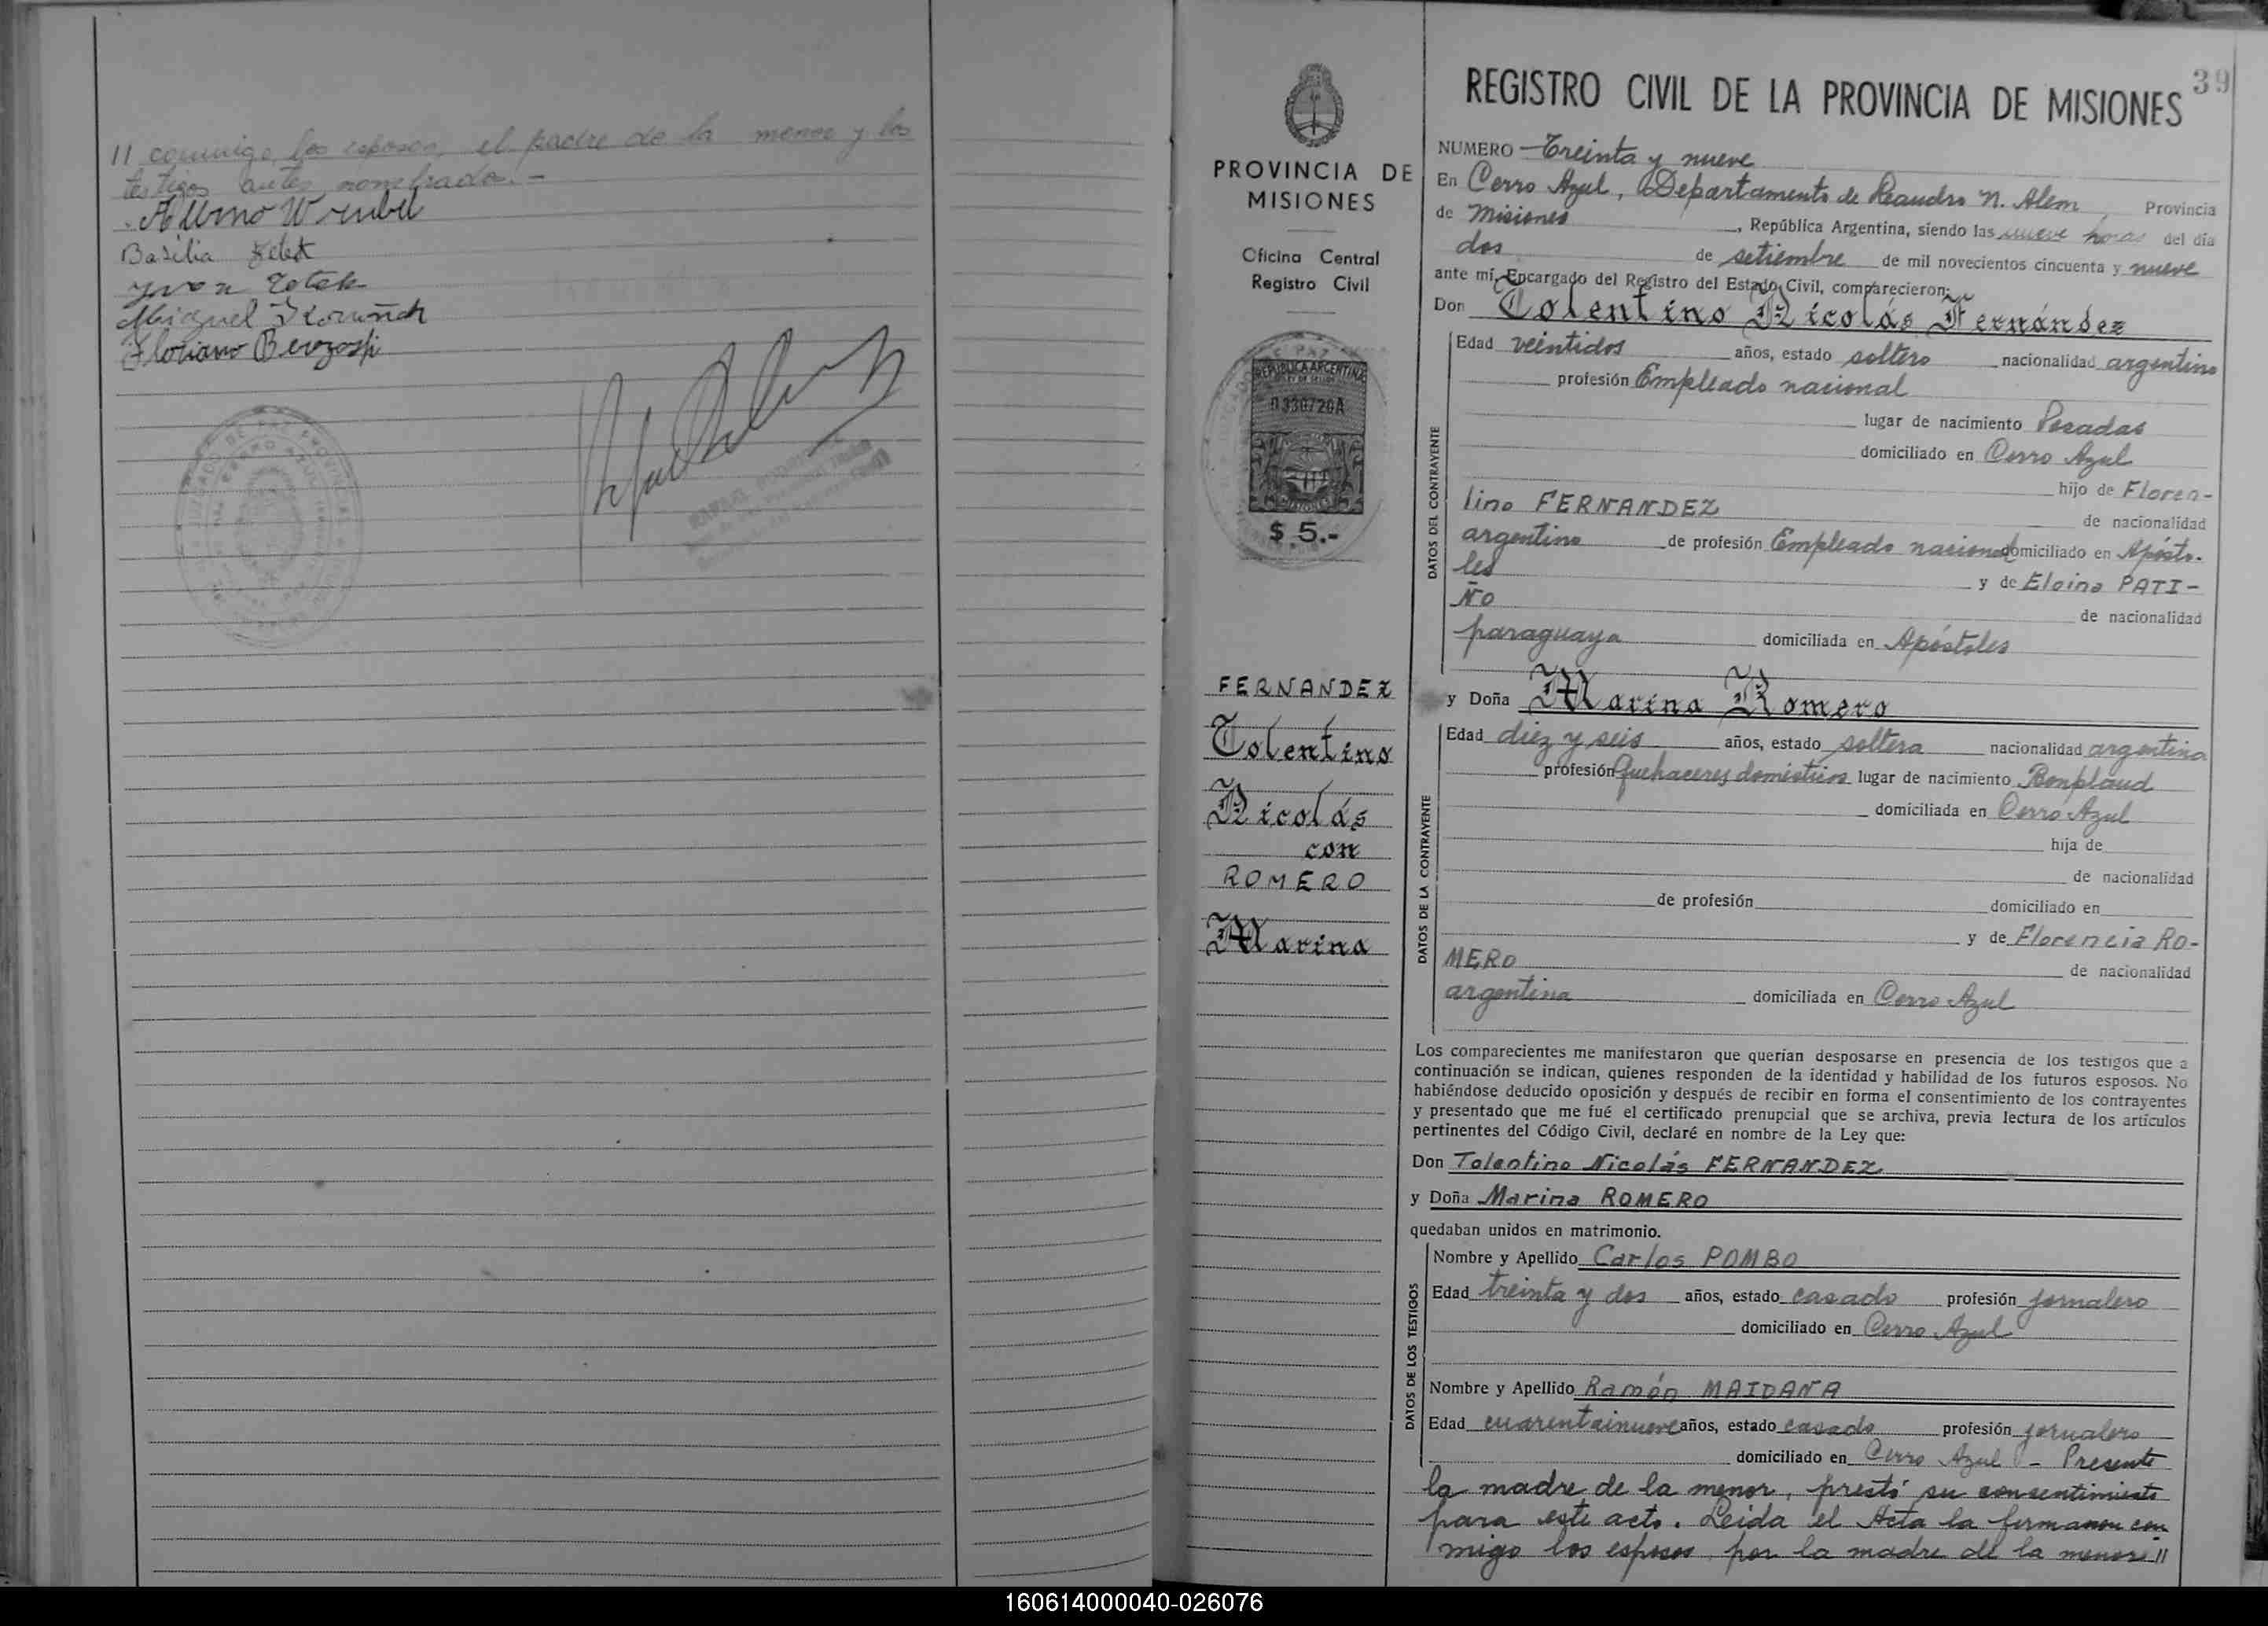 // conmigo los esposos, el padre de la menor y los
testigos antes nombrados.-
Basilia Zelek
Miguel
Floriano
PROVINCIA DE
MISIONES
Oficina Central
Registro Civil
REPUBLICA ARGENTINA
0330720A
$ 5.-
FERNANDEZ
Tolentino
Nicolás
con
ROMERO
Marina
39
REGISTRO CIVIL DE LA PROVINCIA DE MISIONES
NUMERO Treinta y nueve
En Cerro Azul, Departamento de Leandro N. Alem Provincia
de Misiones, República Argentina, siendo las nueve horas del día
dos de setiembre de mil novecientos cincuenta y nueve
ante mí, Encargado del Registro del Estado Civil, comparecieron:
Don Tolentino Nicolás Fernández
DATOS DEL CONTRAYENTE
Edad veintidos años, estado soltero nacionalidad argentino
profesión Empleado nacional
lugar de nacimiento Posadas
domiciliado en Cerro Azul
hijo de Floren-
tino FERNANDEZ
de nacionalidad
argentino de profesión Empleado nacional domiciliado en Apósto-
les y de Eloina PATI-
ÑO
de nacionalidad
paraguaya domiciliada en Apóstoles
y Doña Marina Romero
DATOS DE LA CONTRAYENTE
Edad diez y seis años, estado soltera nacionalidad argentina
profesión Quehaceres domésticos lugar de nacimiento Bonpland
domiciliada en Cerro Azul
hija de
de nacionalidad
de profesión domiciliado en
y de Florencia RO-
MERO
de nacionalidad
argentina domiciliada en Cerro Azul
Los comparecientes me manifestaron que querían desposarse en presencia de los testigos que a
continuación se indican, quienes responden de la identidad y habilidad de los futuros esposos. No
habiéndose deducido oposición y después de recibir en forma el consentimiento de los contrayentes
y presentado que me fué el certificado prenupcial que se archiva, previa lectura de los artículos
pertinentes del Código Civil, declaré en nombre de la Ley que:
Don Tolentino Nicolás FERNANDEZ
y Doña Marina ROMERO
quedaban unidos en matrimonio.
DATOS DE LOS TESTIGOS
Nombre y Apellido Carlos POMBO
Edad treinta y dos años, estado casado profesión jornalero
domiciliado en Cerro Azul
Nombre y Apellido Ramón MAIDANA
Edad cuarentainueve años, estado casado profesión jornalero
domiciliado en Cerro Azul - Presente
la madre de la menor, prestó su consentimiento
para este acto. Leida el Acta la firmaron con
migo los esposos, por la madre de la menor //
160614000040-026076